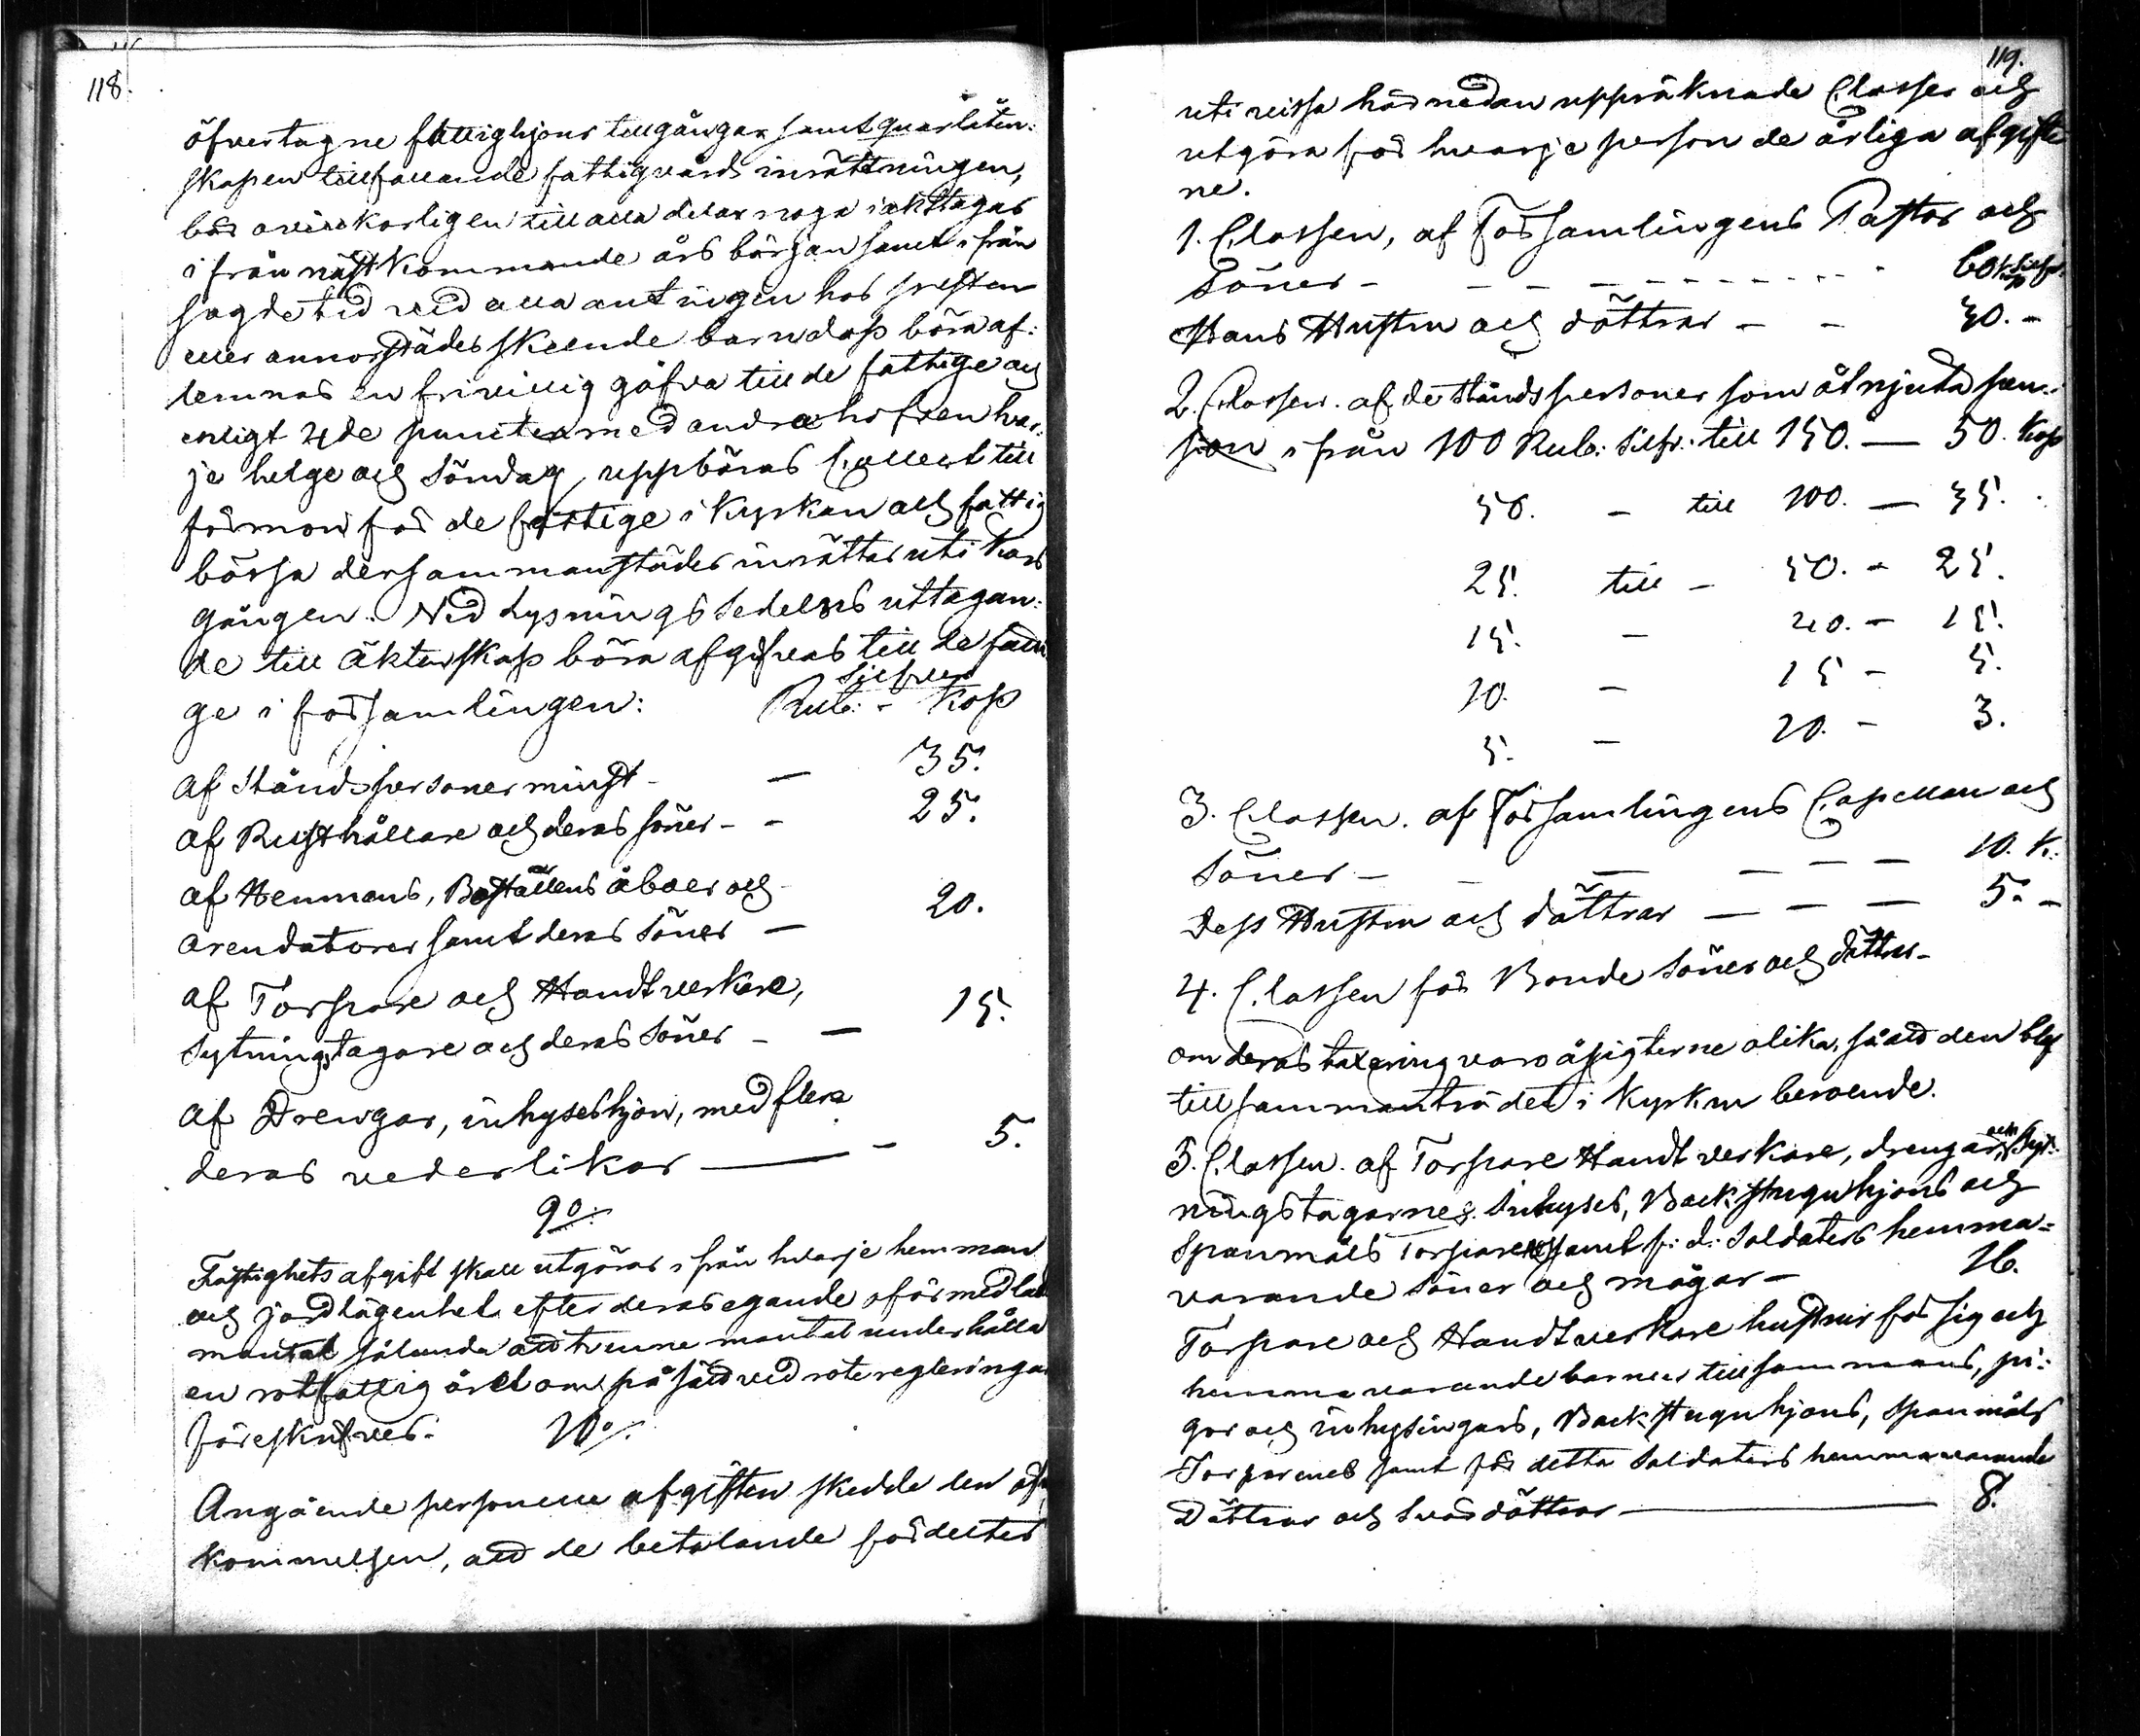 118.
öfvertagne fattighjons tillgångar samt qvarlåten:
skapen tillfallande fattigvårds inrättningen,
bör ovilkorligen till alla delar noga iakttagas
ifrån nästkommande års början samt ifrån
sagde tid vid alla antingen hos presten
eller annorstädes skeende barndop böra af:
lemnas en frivillig gåfva till de fattige och
enligt 4de puncten med andra hofven hvar:
je helge och Söndag uppbäras Collect till
förmon för de fattige i Kyrkan och fattig
börssa dersammanstädes inrättas uti
gången. Vid Lysnings Sedelns uttagan:
de till Äktenskap böra afgifvas till de fatti
ge i församlingen: Rub: - Kop
Silfver
af Ståndspersoner minst - — 35.
af Rusthållare och deras söner - - 25.
af Hemmans, Boställens åboer och
arendatorer samt deras Söner — 20.
af Torpare och Handtverkare,
Sytningstagare och deras Söner - — 15.
af Drengar, inhyseshjon, med flera
deras vederlikar — - 5.
9o:
Fastighets afgift skall utgöras ifrån hvarje hemman
och jordlägenhet efter deras egande oförmedlade
mantal sålunda att trenne mantal underhålla
en rotfattig året om på sätt vid rote regleringar
föreskrifves. 10o/.
Angående personelle afgiften skedde den öfver
kommelsen, att de betalande fördeltes
119.
uti vissa här nedan uppräknade Classer och
utgöra för hvarje person de årliga afgifter
ne.
1. Classen, af Församlingens Pastor och
Söner - - - - - - - - - 60 k. Silfr.
Hans Hustru och döttrar - - 30. -
2. Classen. af de Ståndspersoner som åtnjuta pen:
sion ifrån 100 Rub: Silfr: till 150. — 50. Kop
50. - till 100. — 35.
25. till - 50. - 25.
15. - 20. - 15.
10. - 15 - 5.
5. - 20. - 3.
3. Classen. af Församlingens Capellan och
Söner - - — — — 10. K:
Dess Hustru och döttrar — — — 5. -
4. Classen för Bonde Söner och döttrar -
om deras taxering voro åsigterne olika, så att den blef
till sammanträdet i Kyrkan beroende.
5. Classen. af Torpare Handtverkare, drengar, och Syt:
ningstagarnes. Inhyses, Backstuguhjons och
Spanmåls Torpares samt f: d: Soldaters hemma=
varande Söner och mågar - 16.
Torpare och Handtverkare hustrur för sig och
hemmavarande barnen tillsammans, pi:
gor och inhysingars, Backstuguhjons, Spanmåls
Torparnes samt för detta Soldaters hemmavarande
Döttrar och Svärdöttrar — 8.